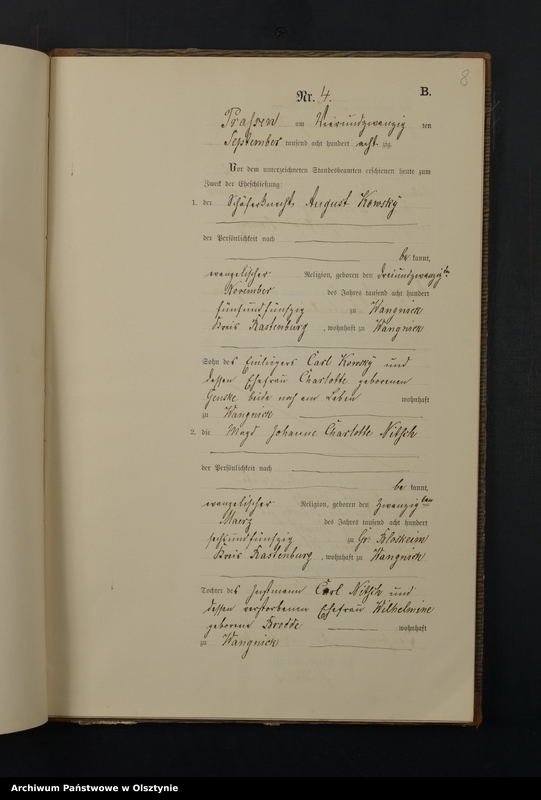 8
Nr. 4. B.
Prassen am Vierundzwanzig ten
September tausend acht hundert acht zig
Vor dem unterzeichneten Standesbeamten erschienen heute zum
Zweck der Eheschließung:
1. der Schäferknecht August Kowsky
der Persönlichkeit nach
be kannt,
evangelischer Religion, geboren den dreiundzwanzigten
November des Jahres tausend acht hundert
fünfundfünfzig zu Wangnick
Kreis Rastenburg, wohnhaft zu Wangnick
Sohn des Einliegers Carl Kowsky und
dessen Ehefrau Charlotte geborenen
Genske beide noch am Leben wohnhaft
zu Wangnick
2. die Magd Johanne Charlotte Nitsch
der Persönlichkeit nach
be kannt,
evangelischer Religion, geboren den zwanzigten
Maerz des Jahres tausend acht hundert
sechsundfünfzig zu Gr. Bloskeim
Kreis Rastenburg, wohnhaft zu Wangnick
Tochter des Instmann Carl Nitsch und
dessen verstorbenen Ehefrau Wilhelmine
geborene wohnhaft
zu Wangnick
Archiwum Państwowe w Olsztynie